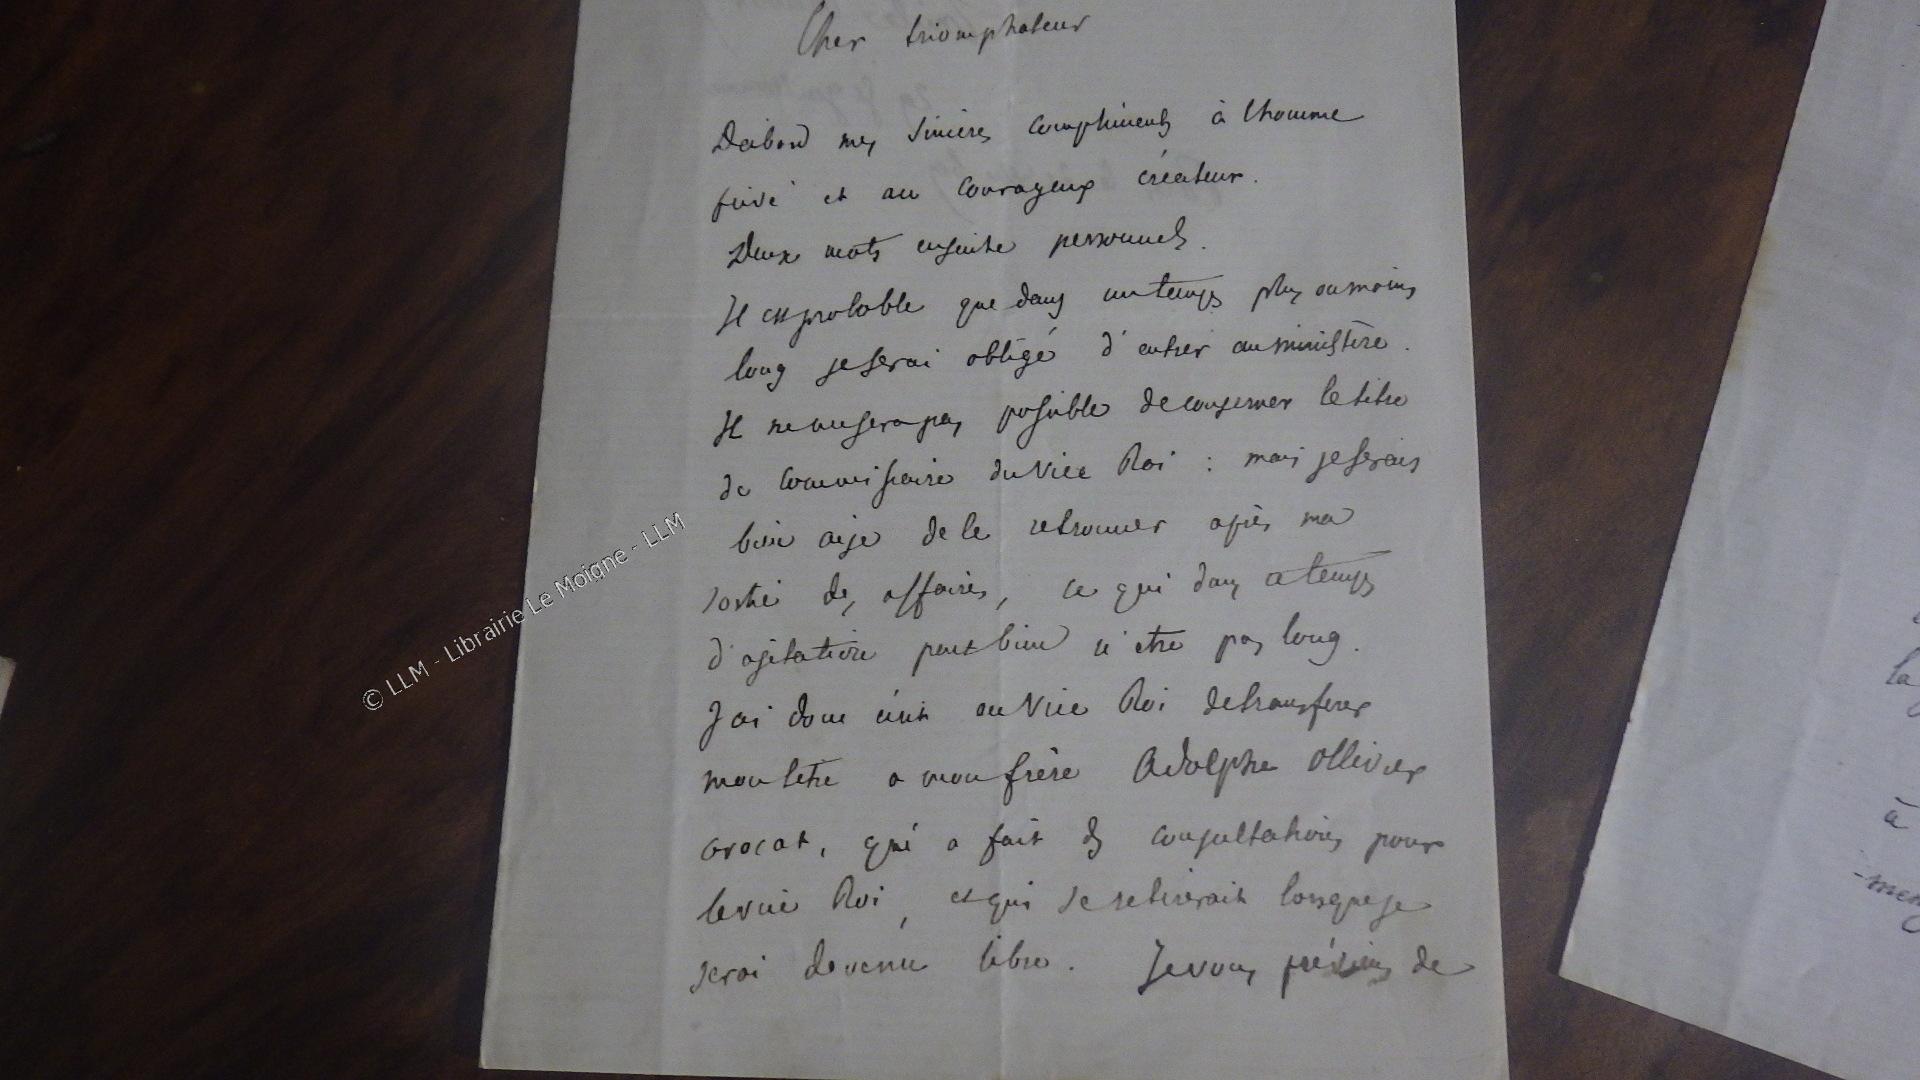 Cher triomphateur
D'abord mes sincères compliments à l'homme
privé et au courageux créateur.
Deux mots ensuite personnels.
Il est probable que dans un temps plus ou moins
long je serai obligé d'entrer au ministère.
Il ne me sera pas possible de conserver le titre
de commissaire du Vice Roi : mais je serais
bien aise de le retrouver après ma
sortie des affaires, ce qui dans ce temps
d'agitation peut bien n'être pas long.
J'ai donc écrit au Vice Roi de transférer
mon titre a mon frère Adolphe Ollivier
avocat, qui a fait des consultations pour
le vice Roi, et qui se retirerait lorsque je
serai devenu libre. Je vous préviens de
la
à
-men
© LLM - Librairie Le Moigne - LLM